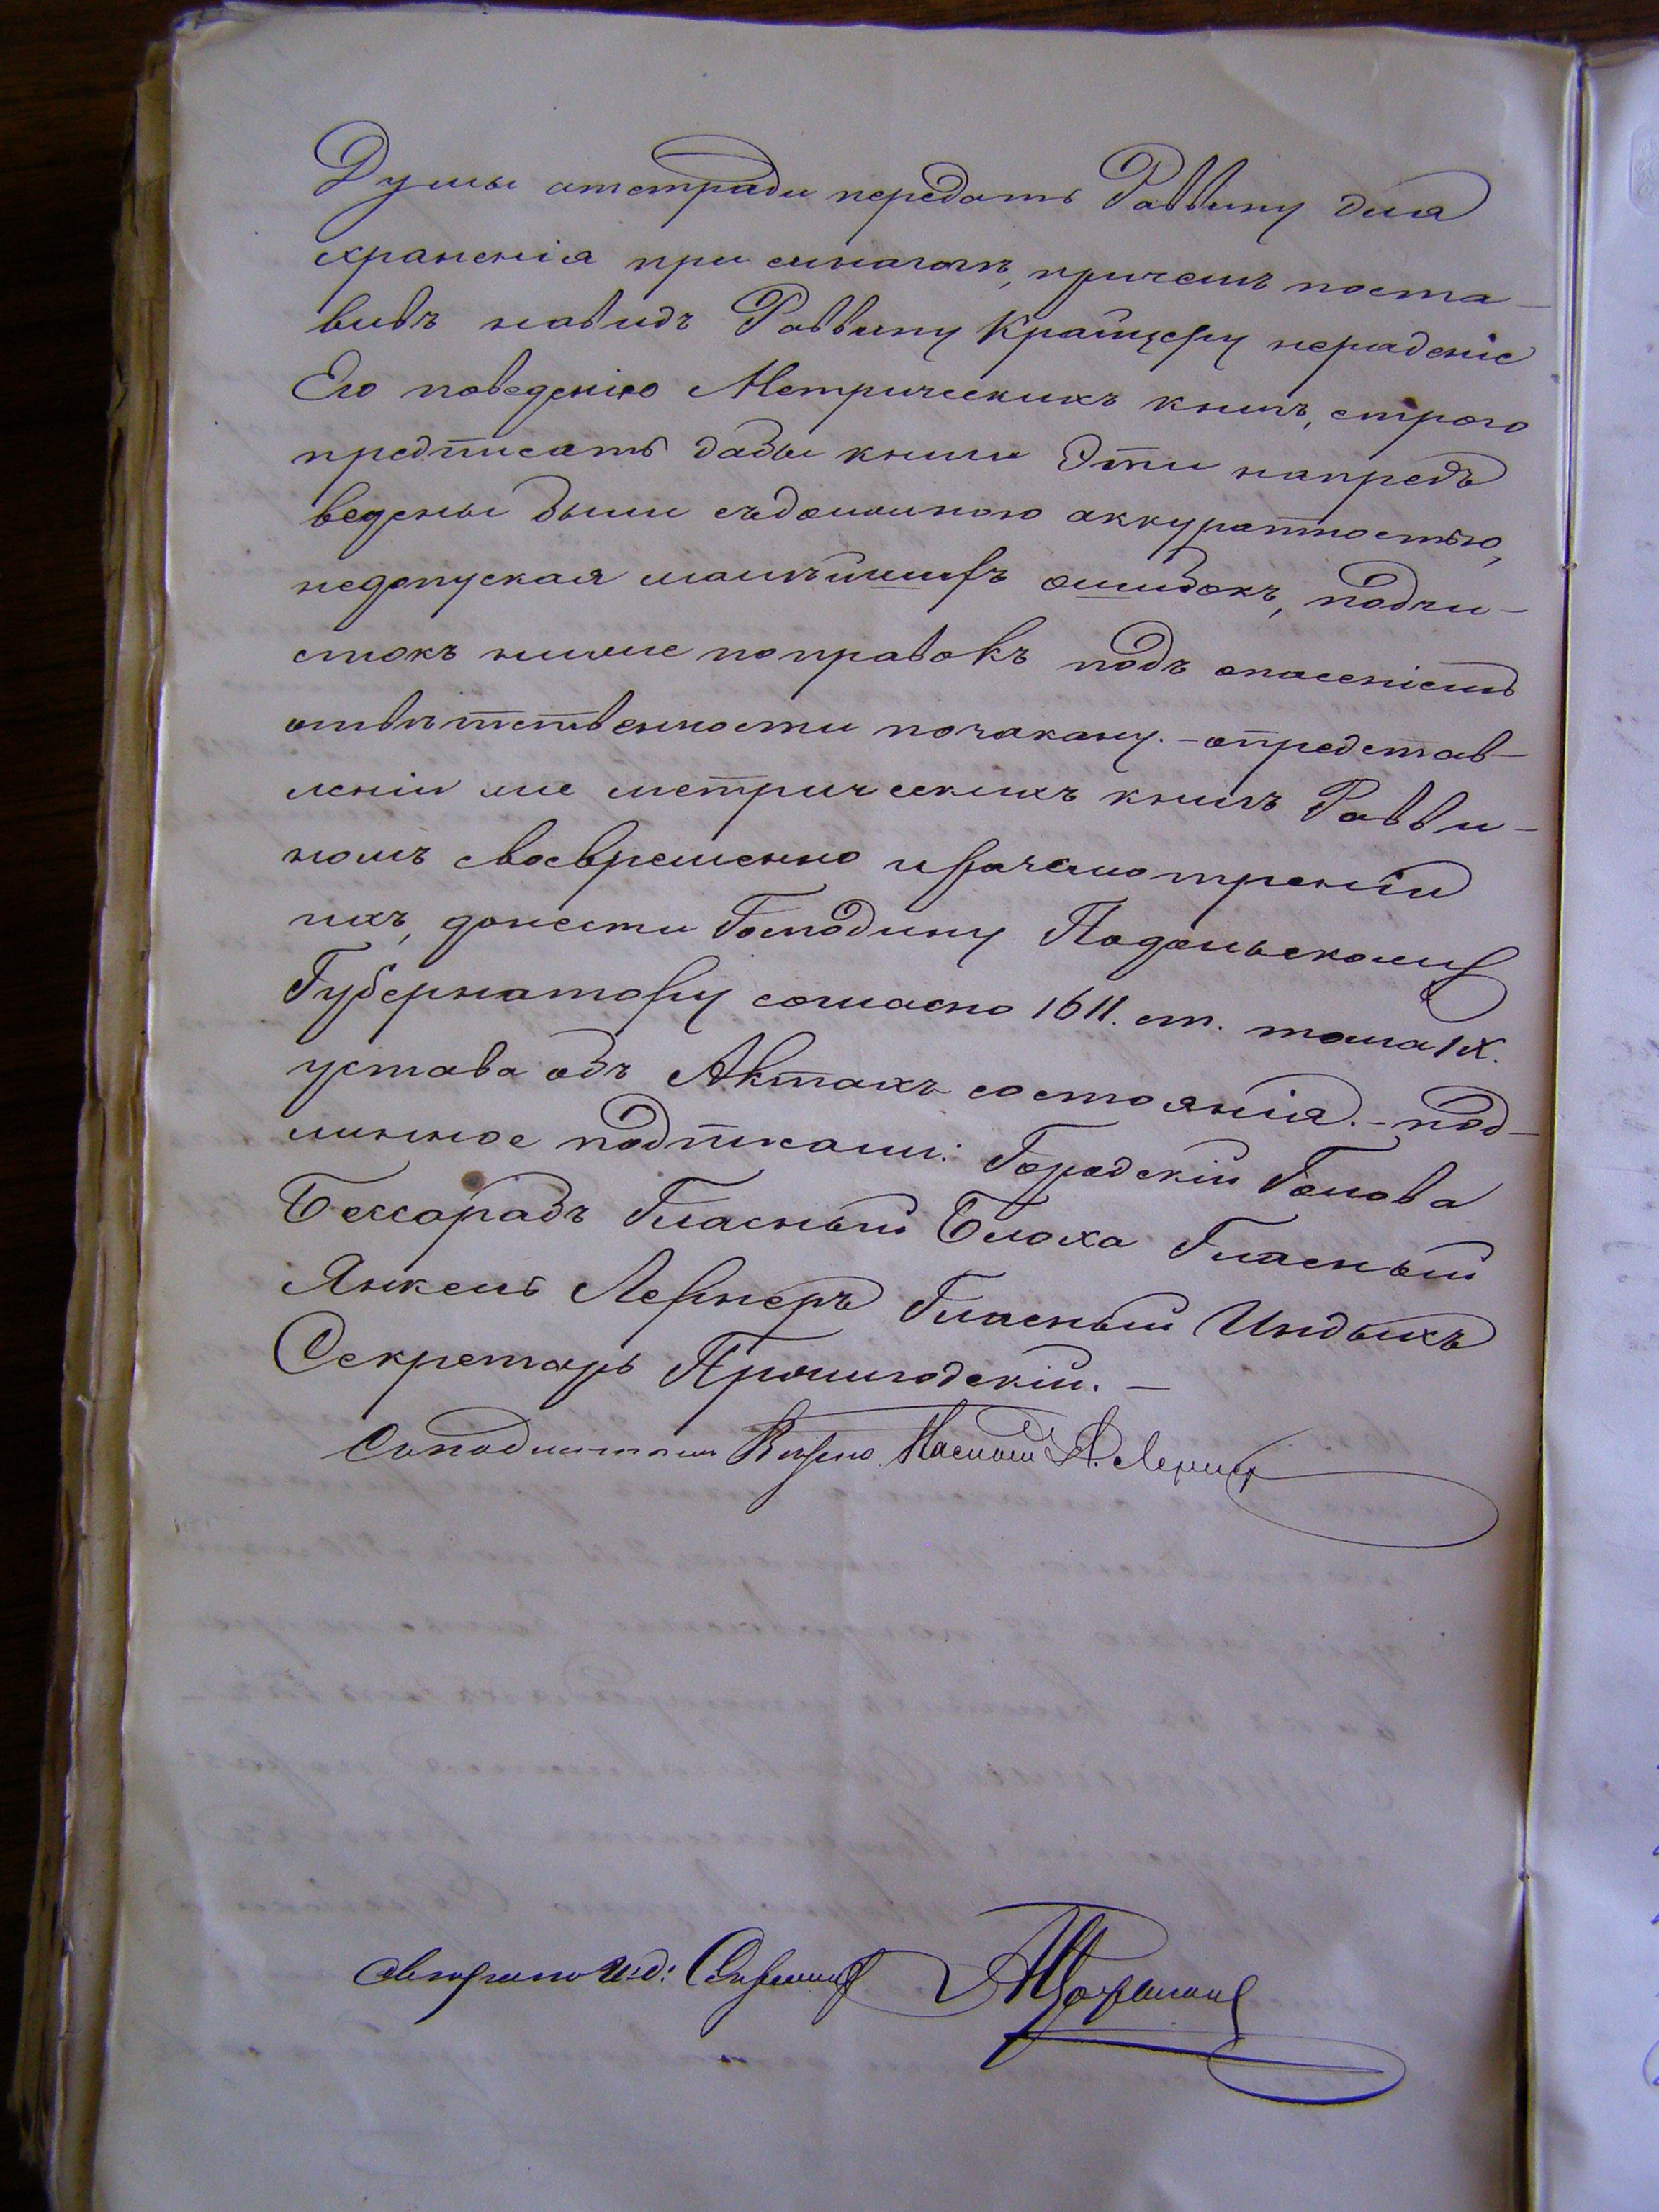 Думы атетради передать Раввину для
храненія при синагогѣ, причемъ поста-
вивъ навидъ Раввину Крайцеру нераденіе
Его поведенію Метрическихъ книгъ, строго
предписать дабы книги Эти напредъ
ведены были съдолжною аккуратностью,
недопуская малѣйшихъ ошибокъ, подчи-
стокъ нилие поправокъ подъ опасеніемъ
отвѣтственности позакону. - опредстав-
леніи же метрическихъ книгъ Равви-
номъ своевременно иразсмотреніи
ихъ, донести Господину Подольскому
Губернатору согласно 1611. ст. тома IX.
устава объ Актахъ состоянія. - под-
линное подписали: Городскій Голова
Бессарабъ Гласный Блоха Гласный
Янкель Лернеръ Гласный Индыхъ
Секретарь
Сиподлиннымъ Верно. А. Лернеръ
Свѣрено И.д: